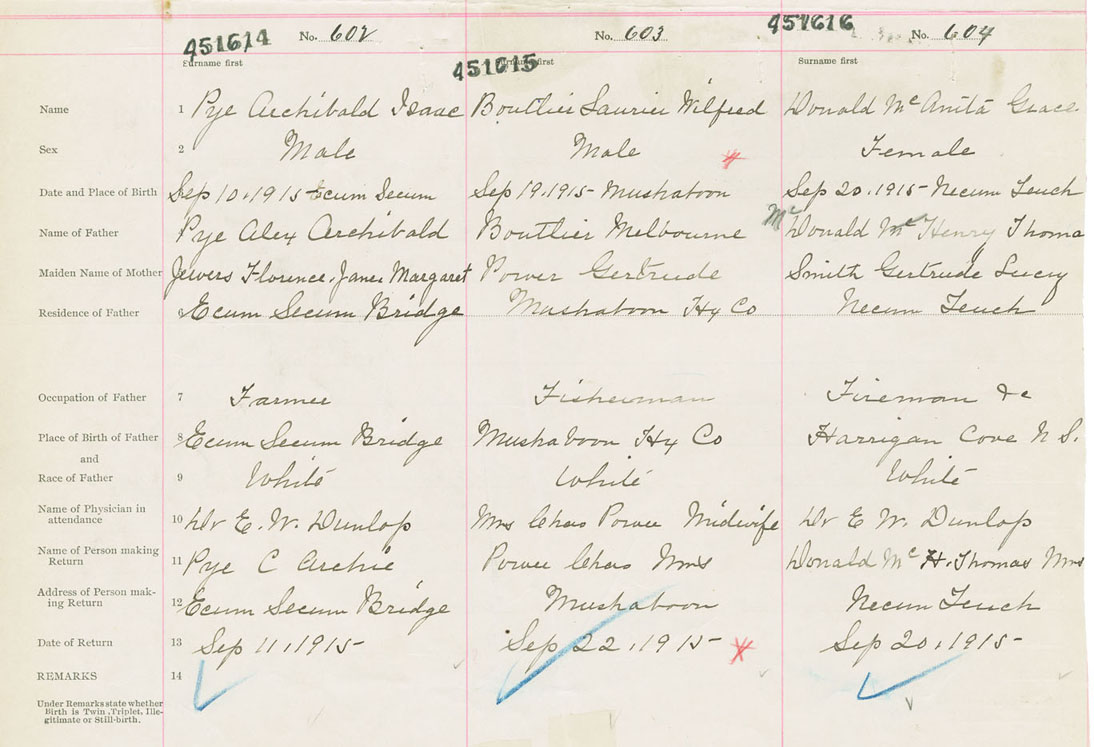 451614 No. 602 451615 No. 603 451616 No. 604
Surname first Surname first Surname first
Name 1 Pye Archibald Isaac Boutlier Laurier Wilfred Donald Mc Anita Grace
Sex 2 Male Male Female
Date and Place of Birth Sep 10.1915 Ecum Secum Sep 19.1915- Mushaboon Sep 20.1915- Necum Teuch
Name of Father Pye Alex Archibald Boutlier Melbourne Mc Donald Mc Henry Thoma
Maiden Name of Mother Jewers Florence, Jane Margaret Power Gertrude Smith Gertrude Lucy
Residence of Father Ecum Secum Bridge Mushaboon Hx Co Necum Teuch
Occupation of Father 7 Farmer Fisherman Fireman &c
Place of Birth of Father 8 Ecum Secum Bridge Mushaboon Hx Co Harrigan Cove N S.
and
Race of Father 9 White White White
Name of Physician in
attendance 10 Dr E. W. Dunlop Mrs Chas Power Midwife Dr E W. Dunlop
Name of Person making
Return 11 Pye C Archie Power Chas Mrs Donald Mc H. Thomas Mrs
Address of Person mak-
ing Return 12 Ecum Secum Bridge Mushaboon Necum Teuch
Date of Return 13 Sep 11.1915- Sep 22.1915- Sep 20.1915-
REMARKS 14
Under Remarks state whether
Birth is Twin, Triplet, Ille-
gitimate or Still-birth.